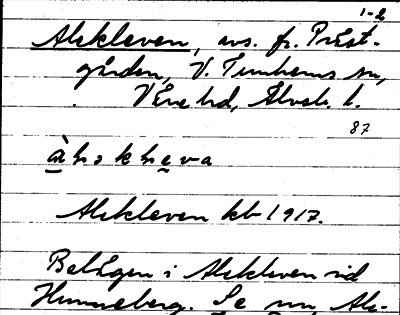 1-2
Alekleven, avs. fr. Präst-
gården, V. Tunhems sn,
Väne hd, Älvsb. l.
87
Alekleven kb 1917.
Belägen i Alekleven vid
Hunneberg. Se nn Ale-